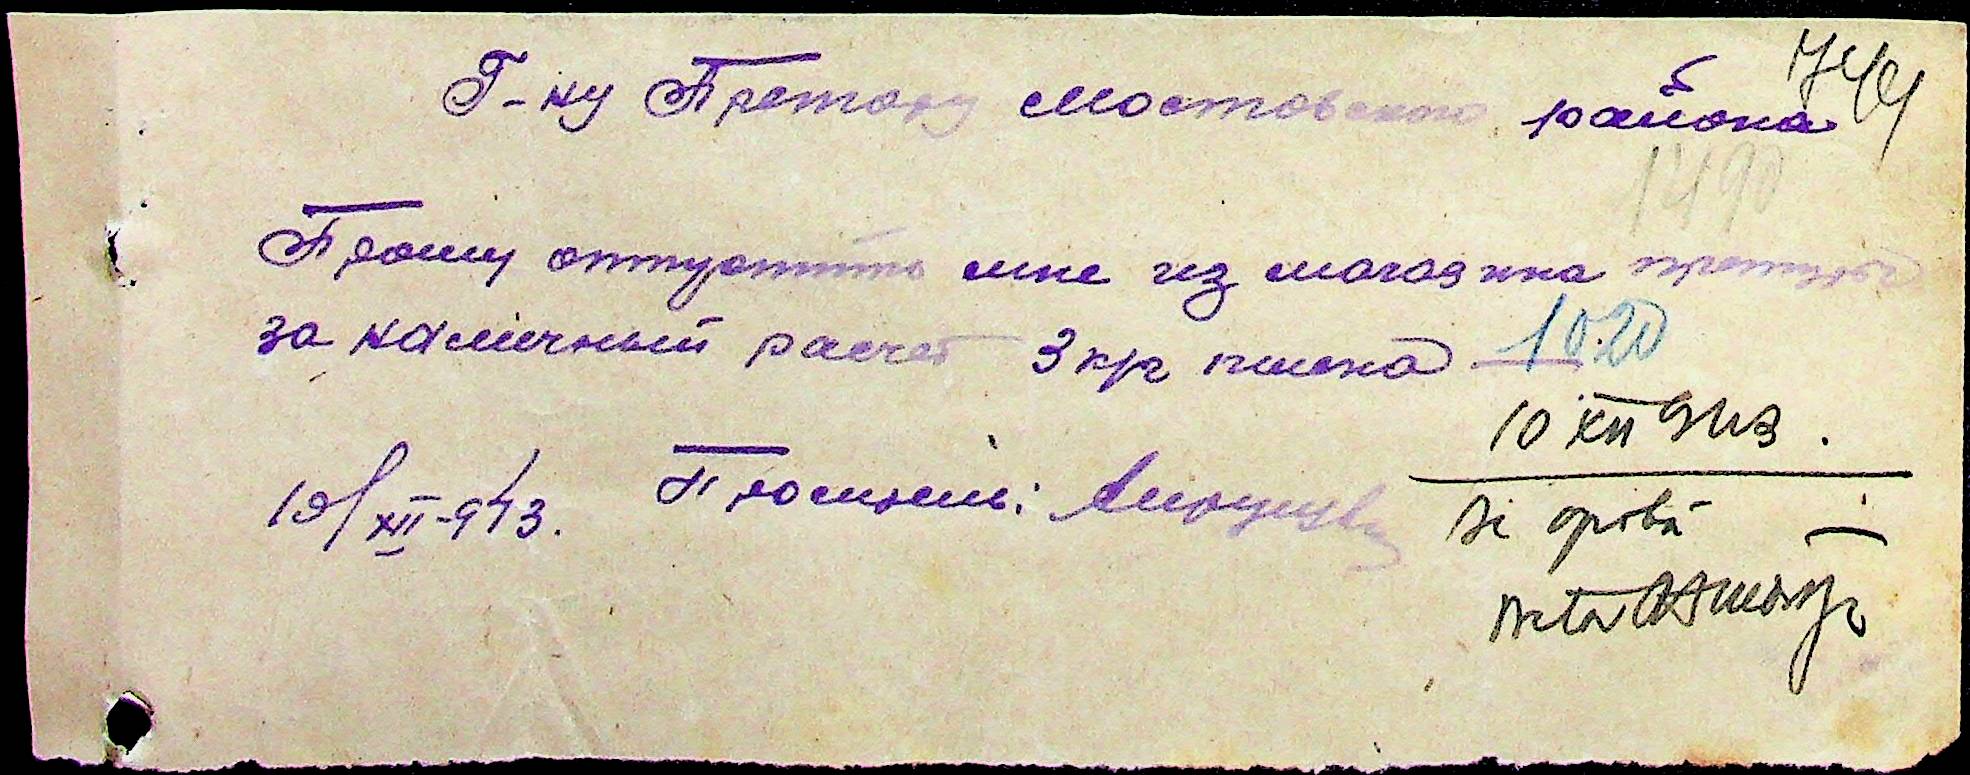 744
Г-ну Претору Мостовского района
1490
Прошу отпустить мне из магазина претуры
за наличный расчет 3 кгр пшена
1020
10 XII 943.
10/XII-943. Проситель:
Se aprobă
Pretor